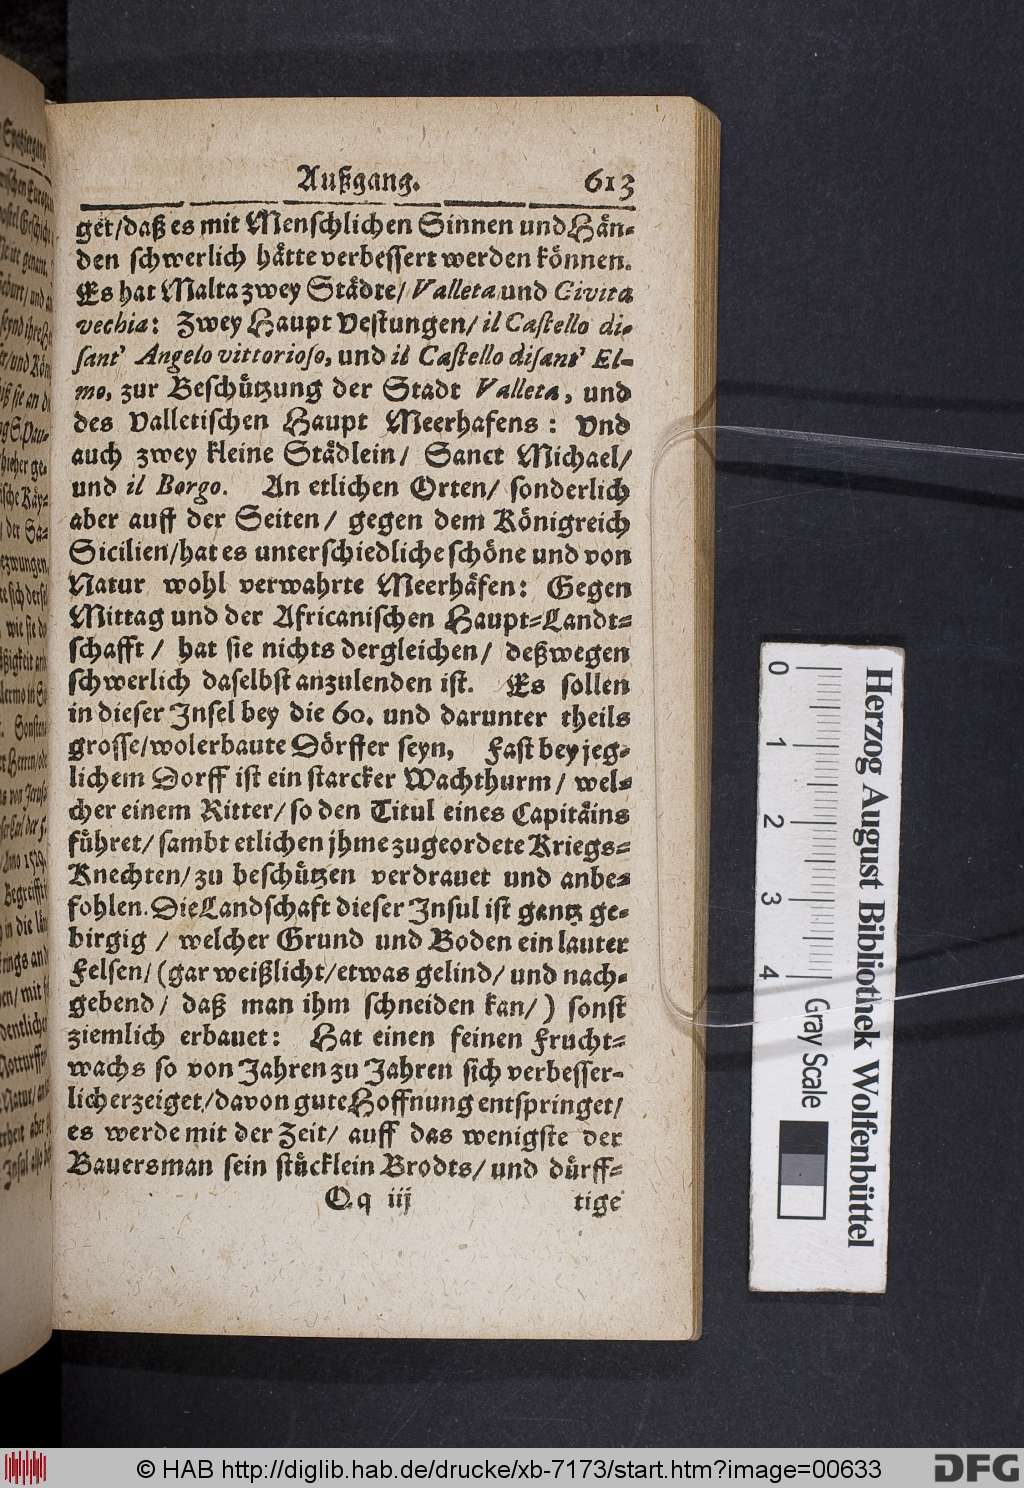 Außgang. 613
get/daß es mit Menschlichen Sinnen und Hän-
den schwerlich hätte verbessert werden können.
Es hat Malta zwey Städte/ Valleta und Civita
vechia: Zwey Haupt Vestungen/ il Castello di-
sant' Angelo vittorioso, und il Castello disant' El-
mo, zur Beschützung der Stadt Valleta, und
des Valletischen Haupt Meerhafens: Vnd
auch zwey kleine Städlein/ Sanct Michael/
und il Borgo. An etlichen Orten/ sonderlich
aber auff der Seiten/ gegen dem Königreich
Sicilien/hat es unterschiedliche schöne und von
Natur wohl verwahrte Meerhäfen: Gegen
Mittag und der Africanischen Haupt-Landt-
schafft/ hat sie nichts dergleichen/ deßwegen
schwerlich daselbst anzulenden ist. Es sollen
in dieser Insel bey die 60. und darunter theils
grosse/wolerbaute Dörffer seyn, Fast bey jeg-
lichem Dorff ist ein starcker Wachthurm/ wel-
cher einem Ritter/ so den Titul eines Capitäins
führet/ sambt etlichen jhme zugeordete Kriegs-
Knechten/ zu beschützen verdrauet und anbe-
fohlen. Die Landschaft dieser Insul ist gantz ge-
birgig/ welcher Grund und Boden ein lauter
Felsen/ (gar weißlicht/etwas gelind/ und nach-
gebend/ daß man ihm schneiden kan/) sonst
ziemlich erbauet: Hat einen feinen Frucht-
wachs so von Jahren zu Jahren sich verbesser-
lich erzeiget/davon gute Hoffnung entspringet/
es werde mit der Zeit/ auff das wenigste der
Bauersman sein stücklein Brodts/ und dürff-
Qq iij tige
Herzog August Bibliothek Wolfenbüttel
0 1 2 3 4
Gray Scale
© HAB http://diglib.hab.de/drucke/xb-7173/start.htm?image=00633
DFG